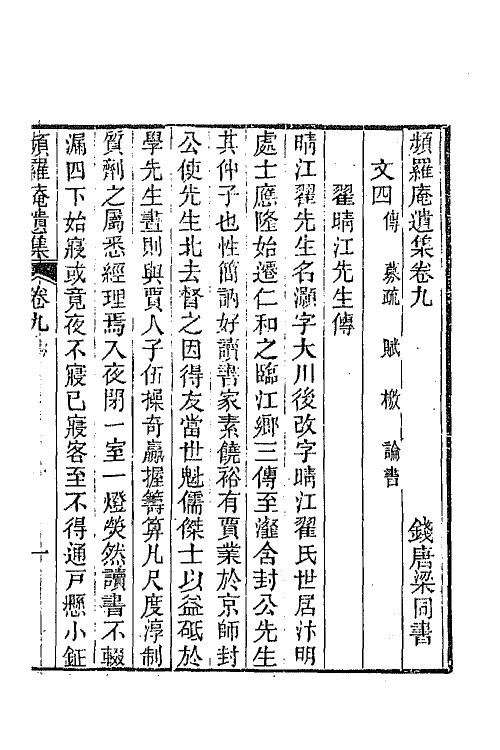 頻羅庵遺集卷九 錢唐梁同書
文四 傳 募疏 賦 檄 論書
翟晴江先生傳
晴江翟先生名灝字大川後改字晴江翟氏世居汴明
處士應隆始遷仁和之臨江鄉三傳至瀣舍封公先生
其仲子也性簡訥好讀書家素饒裕有賈業於京師封
公使先生北去督之因得友當世魁儒傑士以益砥於
學先生晝則與賈人子伍操奇贏握籌算凡尺度淳制
質劑之屬悉經理焉入夜閉一室一燈熒然讀書不輟
漏四下始寢或竟夜不寢已寢客至不得通戸懸小鉦
頻羅庵遺集 卷九 一